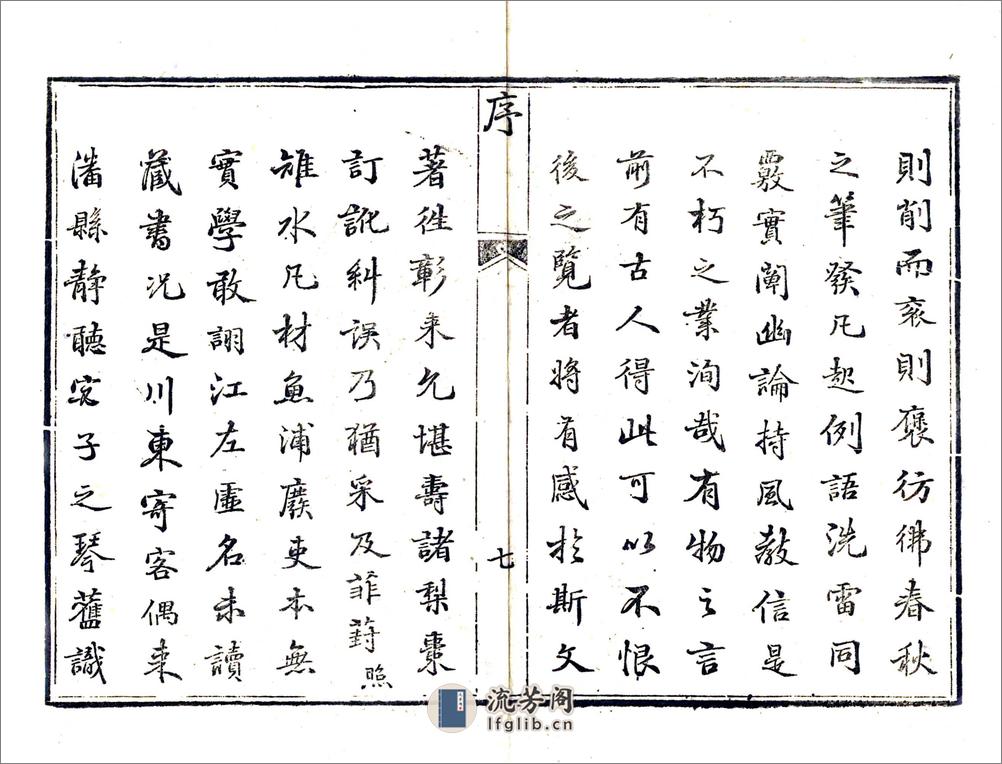 則削而袞則褒彷彿春秋
之筆發凡起例語洗雷同
覈實闡幽論持風教信是
不朽之業洵哉有物之言
前有古人得此可以不恨
後之覽者將有感於斯文
序
七
著往彰来允堪壽諸梨棗
訂訛糾誤乃猶采及菲葑照
雒水凡材魚浦廢吏本無
實學敢詡江左虛名未讀
藏書况是川東寄客偶来
潘縣静聽宓子之琴舊識
流芳阁
lfglib.cn